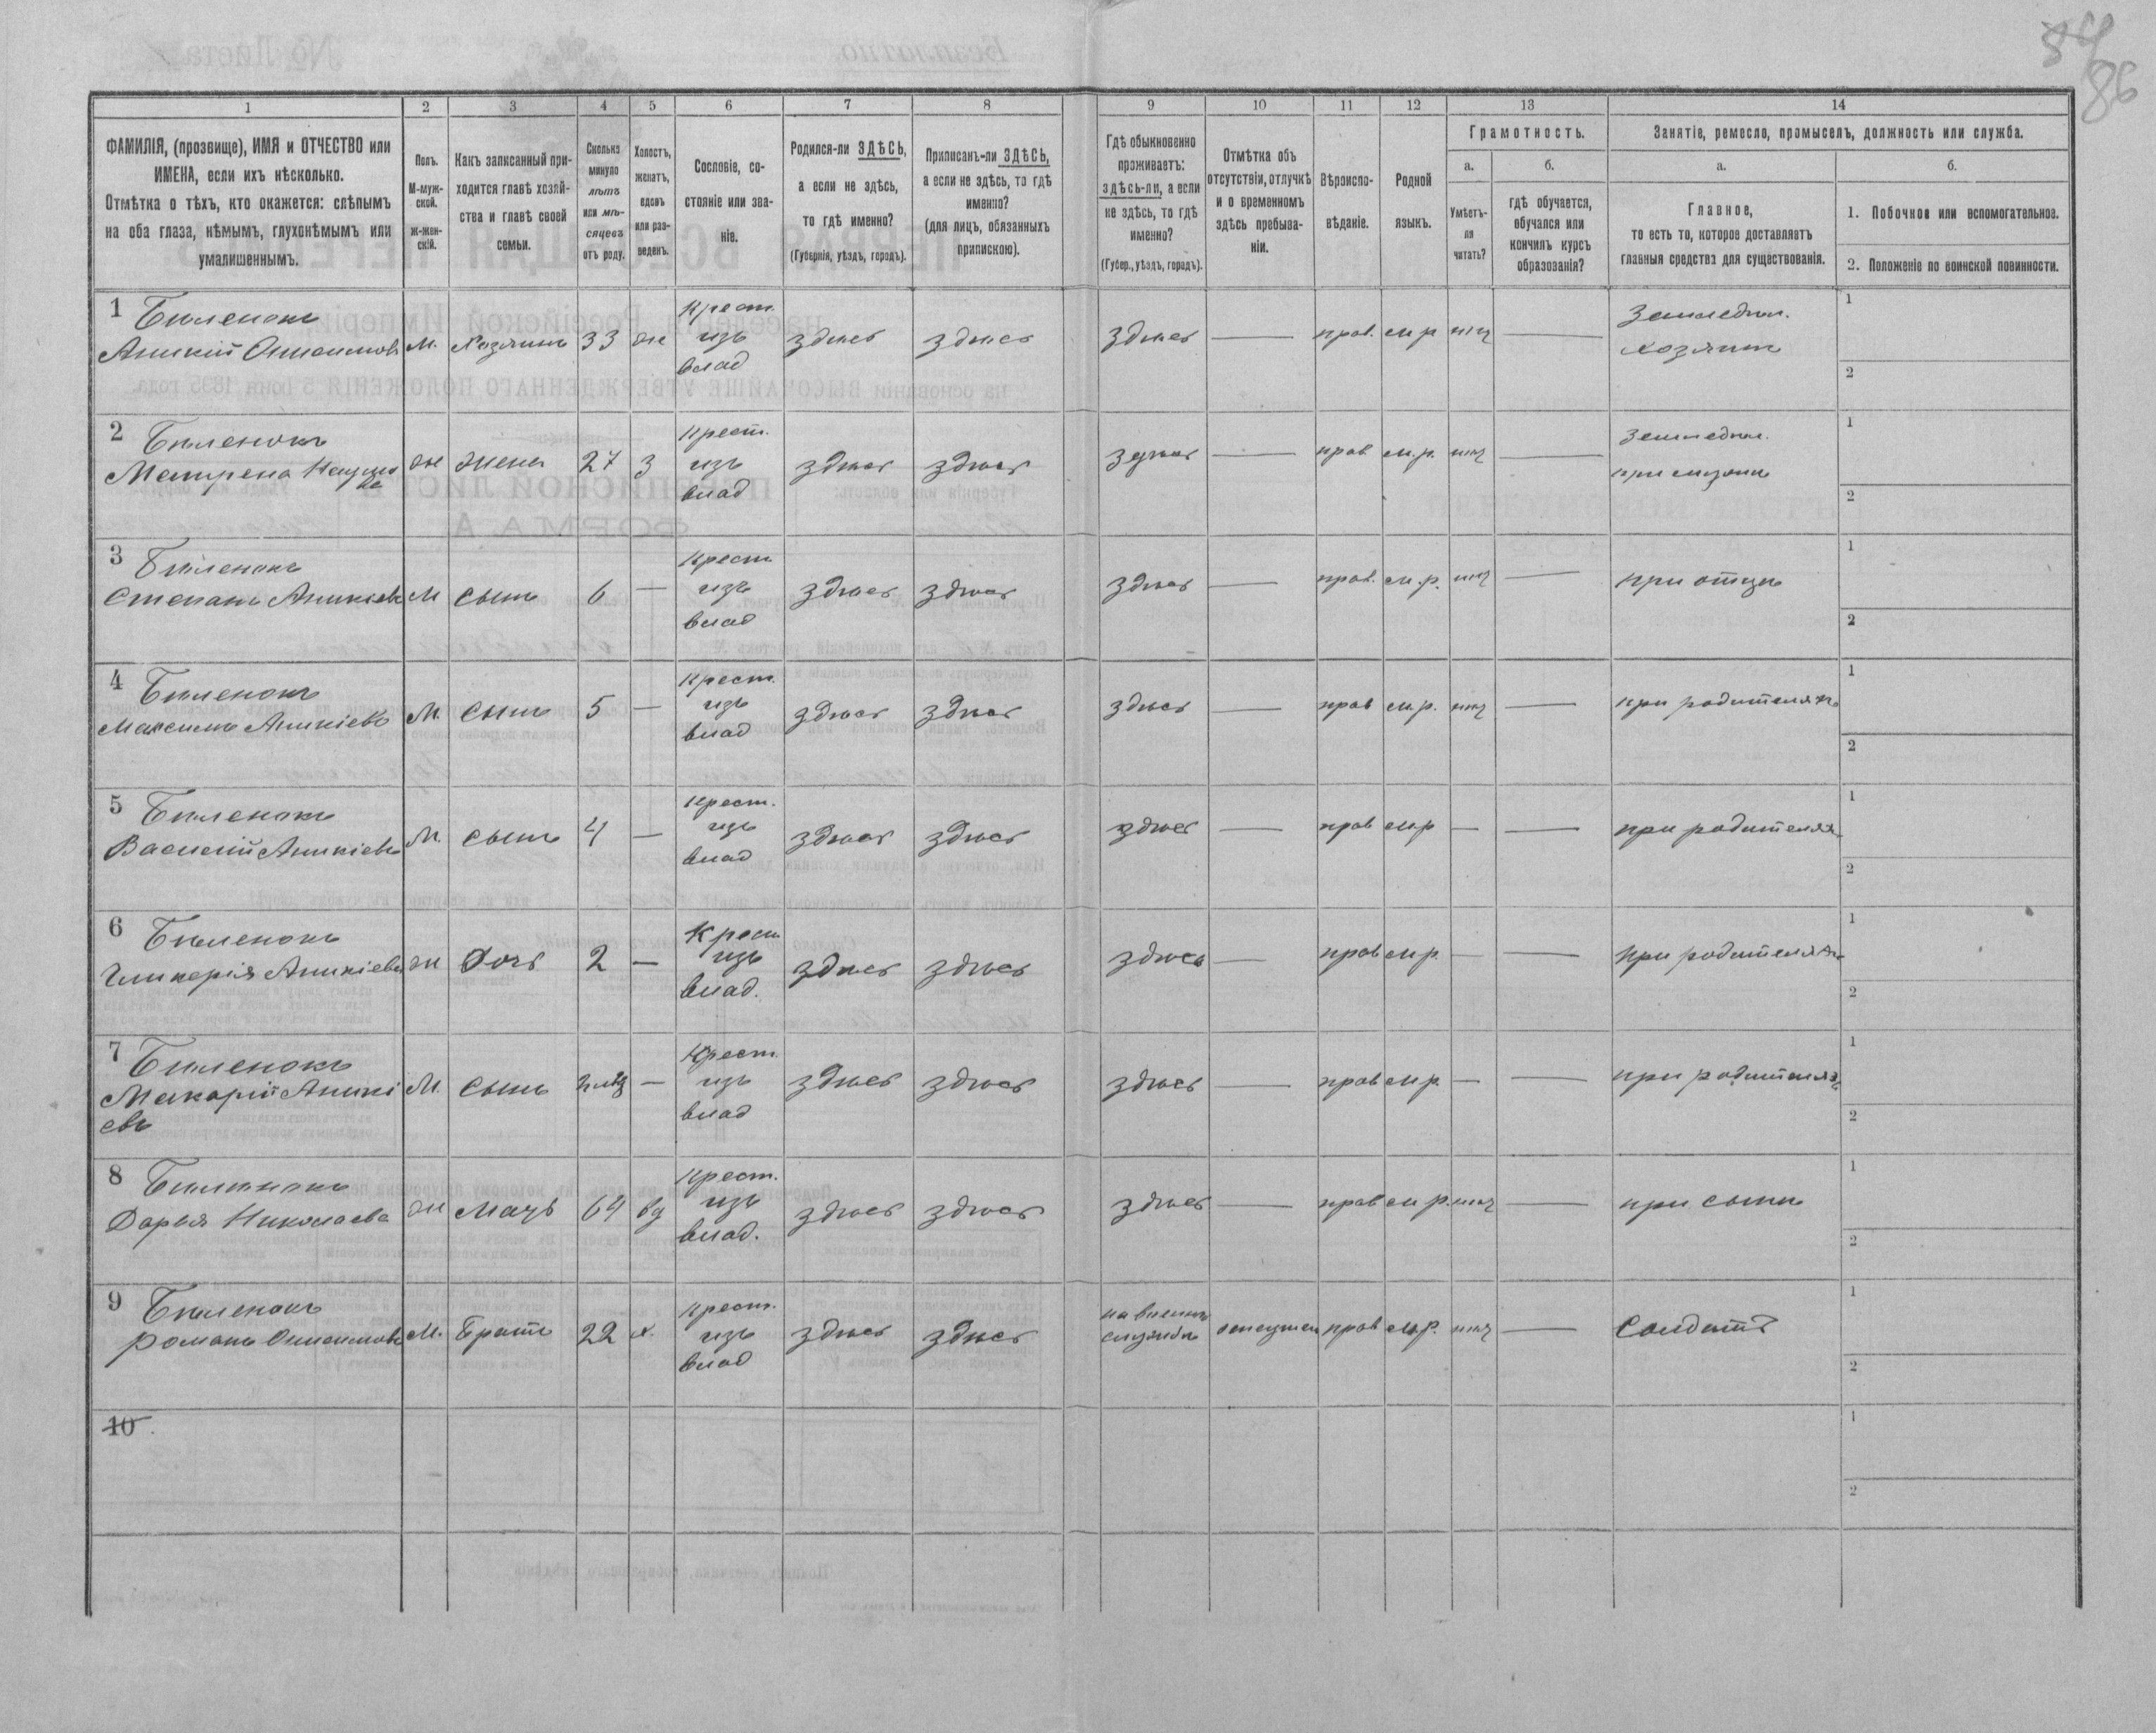 84
86
1
2
3
4
5
6
7
8
9
10
11
12
13
14
ФАМИЛІЯ, (прозвище), ИМЯ и ОТЧЕСТВО или
ИМЕНА, если ихъ нѣсколько.
Отмѣтка о тѣхъ, кто окажется: слѣпымъ
на оба глаза, нѣмымъ, глухонѣмымъ или
умалишеннымъ.
Полъ.
М-муж-
ской.
Ж-жен-
скій.
Какъ записанный при-
ходится главѣ хозяй-
ства и главѣ своей
семьи.
Сколько
минуло
лѣтъ
или мѣ-
сяцевъ
отъ роду.
Холостъ,
женатъ,
вдовъ
или раз-
веденъ.
Сословіе, со-
стояніе или зва-
ніе.
Родился-ли ЗДѢСЬ,
а если не здѣсь,
то гдѣ именно?
(Губернія, уѣздъ, городъ).
Приписанъ-ли ЗДѢСЬ,
а если не здѣсь, то гдѣ
именно?
(для лицъ, обязанныхъ
припискою).
Гдѣ обыкновенно
проживаетъ:
здѣсь-ли, а если
не здѣсь, то гдѣ
именно?
(Губер., уѣздъ, городъ).
Отмѣтка объ
отсутствіи, отлучкѣ
и о временномъ
здѣсь пребыва-
ніи.
Вѣроиспо-
вѣданіе.
Родной
языкъ.
Грамотность.
а.
б.
Умѣетъ-
ли
читать?
гдѣ обучается,
обучался или
кончилъ курсъ
образованія?
Занятіе, ремесло, промыселъ, должность или служба.
а.
б.
Главное,
то есть то, которое доставляетъ
главныя средства для существованія.
1. Побочное или вспомогательное.
2. Положеніе по воинской повинности.
1 Биленокъ
Аникій Онисимовъ М. Хозяинъ 33 ж Крест. изъ влад здѣсь здѣсь здѣсь — прав. м р нѣт — Земледѣл. хозяинъ 1 2
2 Биленокъ
Матрена ж жена 27 з Крест. изъ влад здѣсь здѣсь здѣсь — прав м.р. нѣт — Земледѣл. 1 2
3 Биленокъ
Степанъ Аникіевъ М сынъ 6 — Крест. изъ влад здѣсь здѣсь здѣсь — прав. м.р. нѣт — при отцѣ 1 2
4 Биленокъ
Максимъ Аникіевъ М. сынъ 5 — Крест. изъ влад здѣсь здѣсь здѣсь — прав м.р. нѣт — при родителяхъ 1 2
5 Биленокъ
Василій Аникіевъ М. сынъ 4 — Крест. изъ влад здѣсь здѣсь здѣсь — прав м.р — — при родителяхъ 1 2
6 Биленокъ
Гликерія Аникіева ж Дочь 2 — Крест изъ влад. здѣсь здѣсь здѣсь — прав м.р. — — при родителяхъ 1 2
7 Биленокъ
Макарій Аникі
евъ М. сынъ — Крест. изъ влад здѣсь здѣсь здѣсь — прав м.р. — — при родителяхъ 1 2
8 Биленокъ
Дарья Николаева ж мать 69 вд Крест. изъ влад. здѣсь здѣсь здѣсь — прав м р. нѣт — при сынѣ 1 2
9 Биленокъ
Романъ Онисимовъ М. Братъ 22 х. Крест. изъ влад здѣсь здѣсь на военной службѣ прав м.р. нѣт — Солдатъ 1 2
10
1
2